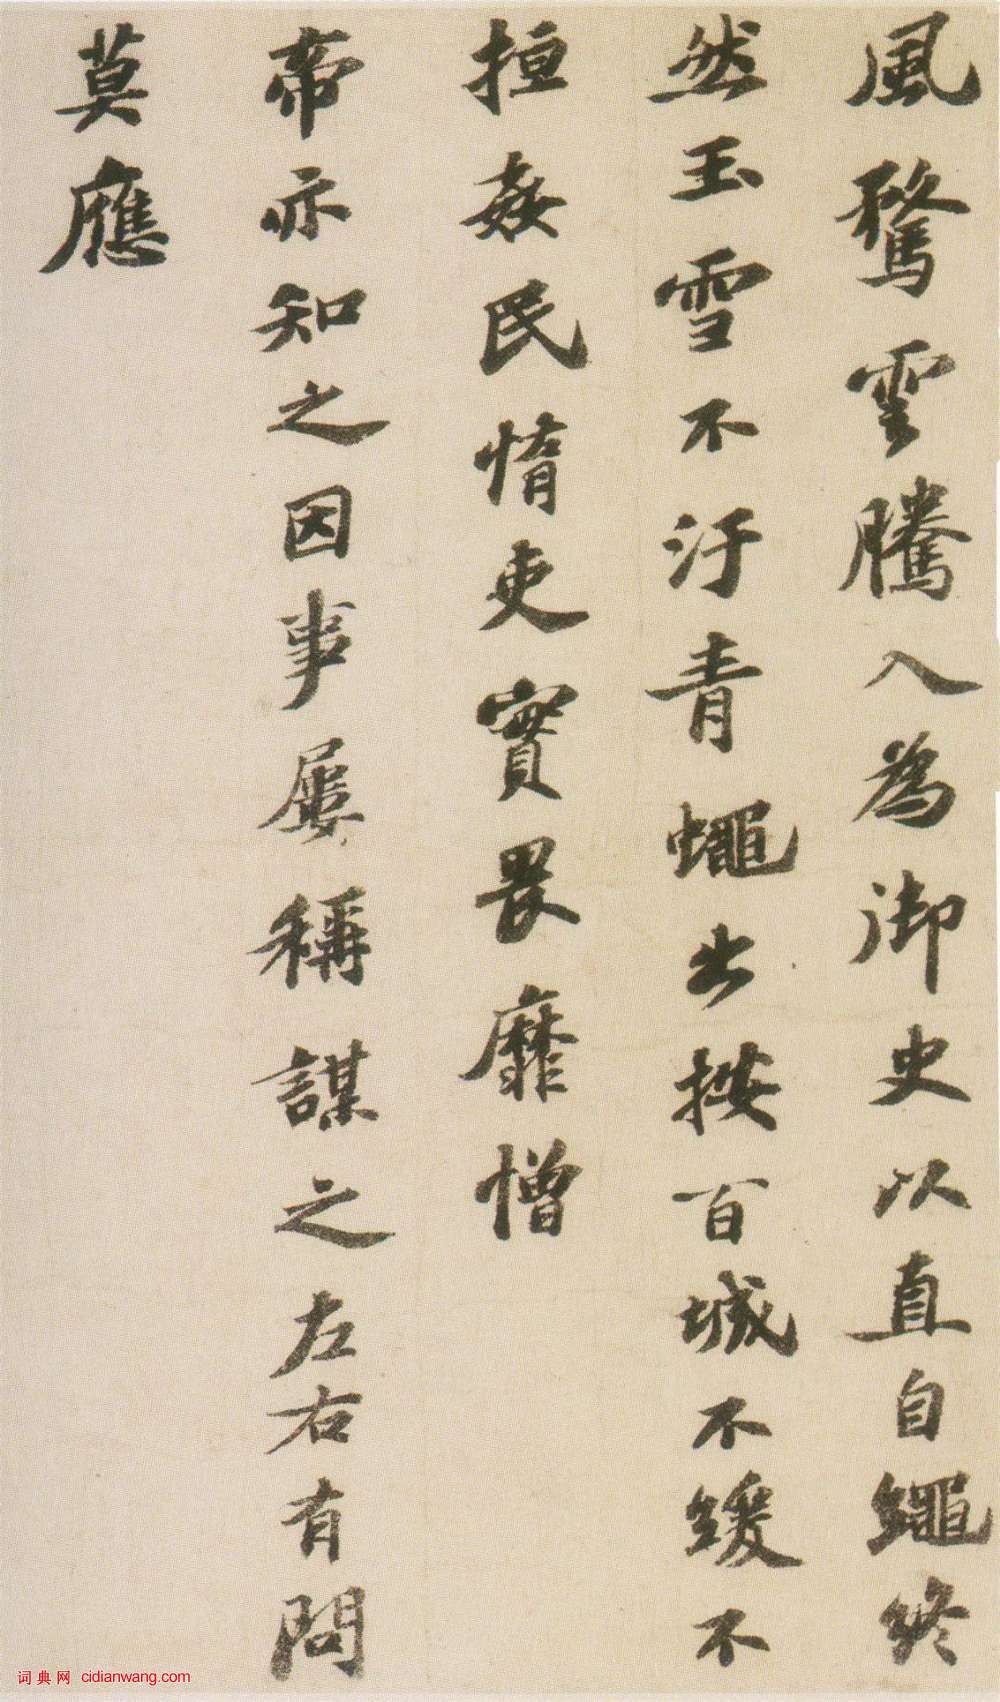 風騖雲騰入為御史以直自繩終
然玉雪不汙青蠅出按百城不緩不
搄姦民惰吏實畏靡憎
帝亦知之因事屢稱謀之左右有問
莫應
词典网 cidianwang.com